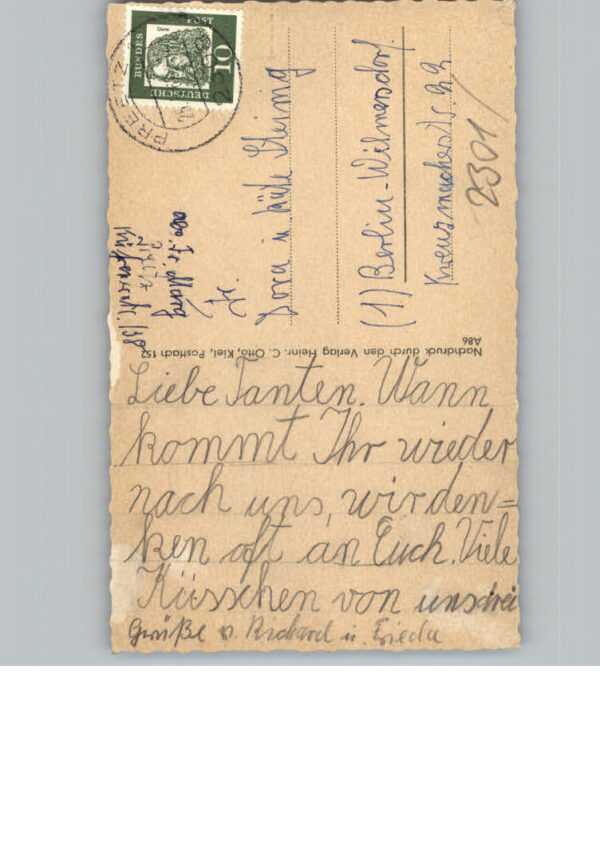 Liebe Tanten. Wann
kommt Ihr wieder
nach uns, wir den=
ken oft an Euch. Viele
Küsschen von uns drei
Grüße v. Richard u. Frieda
DEUTSCHE BUNDESPOST
10
PREETZ
Fr.
Dora u
(1) Berlin-Wilmersdorf.
Kreuznacherstr.
2301/
Nachdruck durch den Verlag Heinr. C. Otto, Kiel, Postfach 152
A86